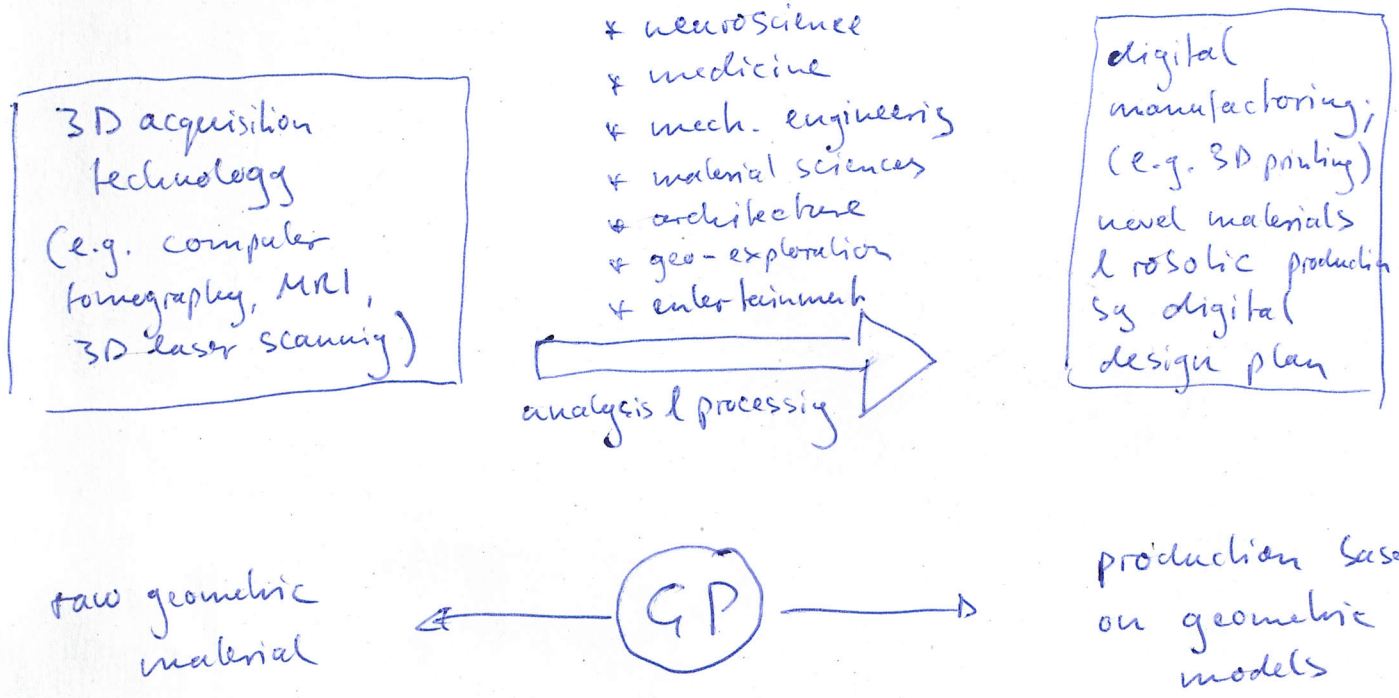 3D acquisition
technology
(e.g. computer
tomography, MRI,
3D laser scannig)
* neuroscience
* medicine
* mech. engineerig
* material sciences
* architecture
* geo-exploration
* entertainment
analysis & processig
digital
manufactoring;
(e.g. 3D printing)
novel materials
& robotic production
by digital
design plan
raw geometric
material
GP
production base
on geometric
models